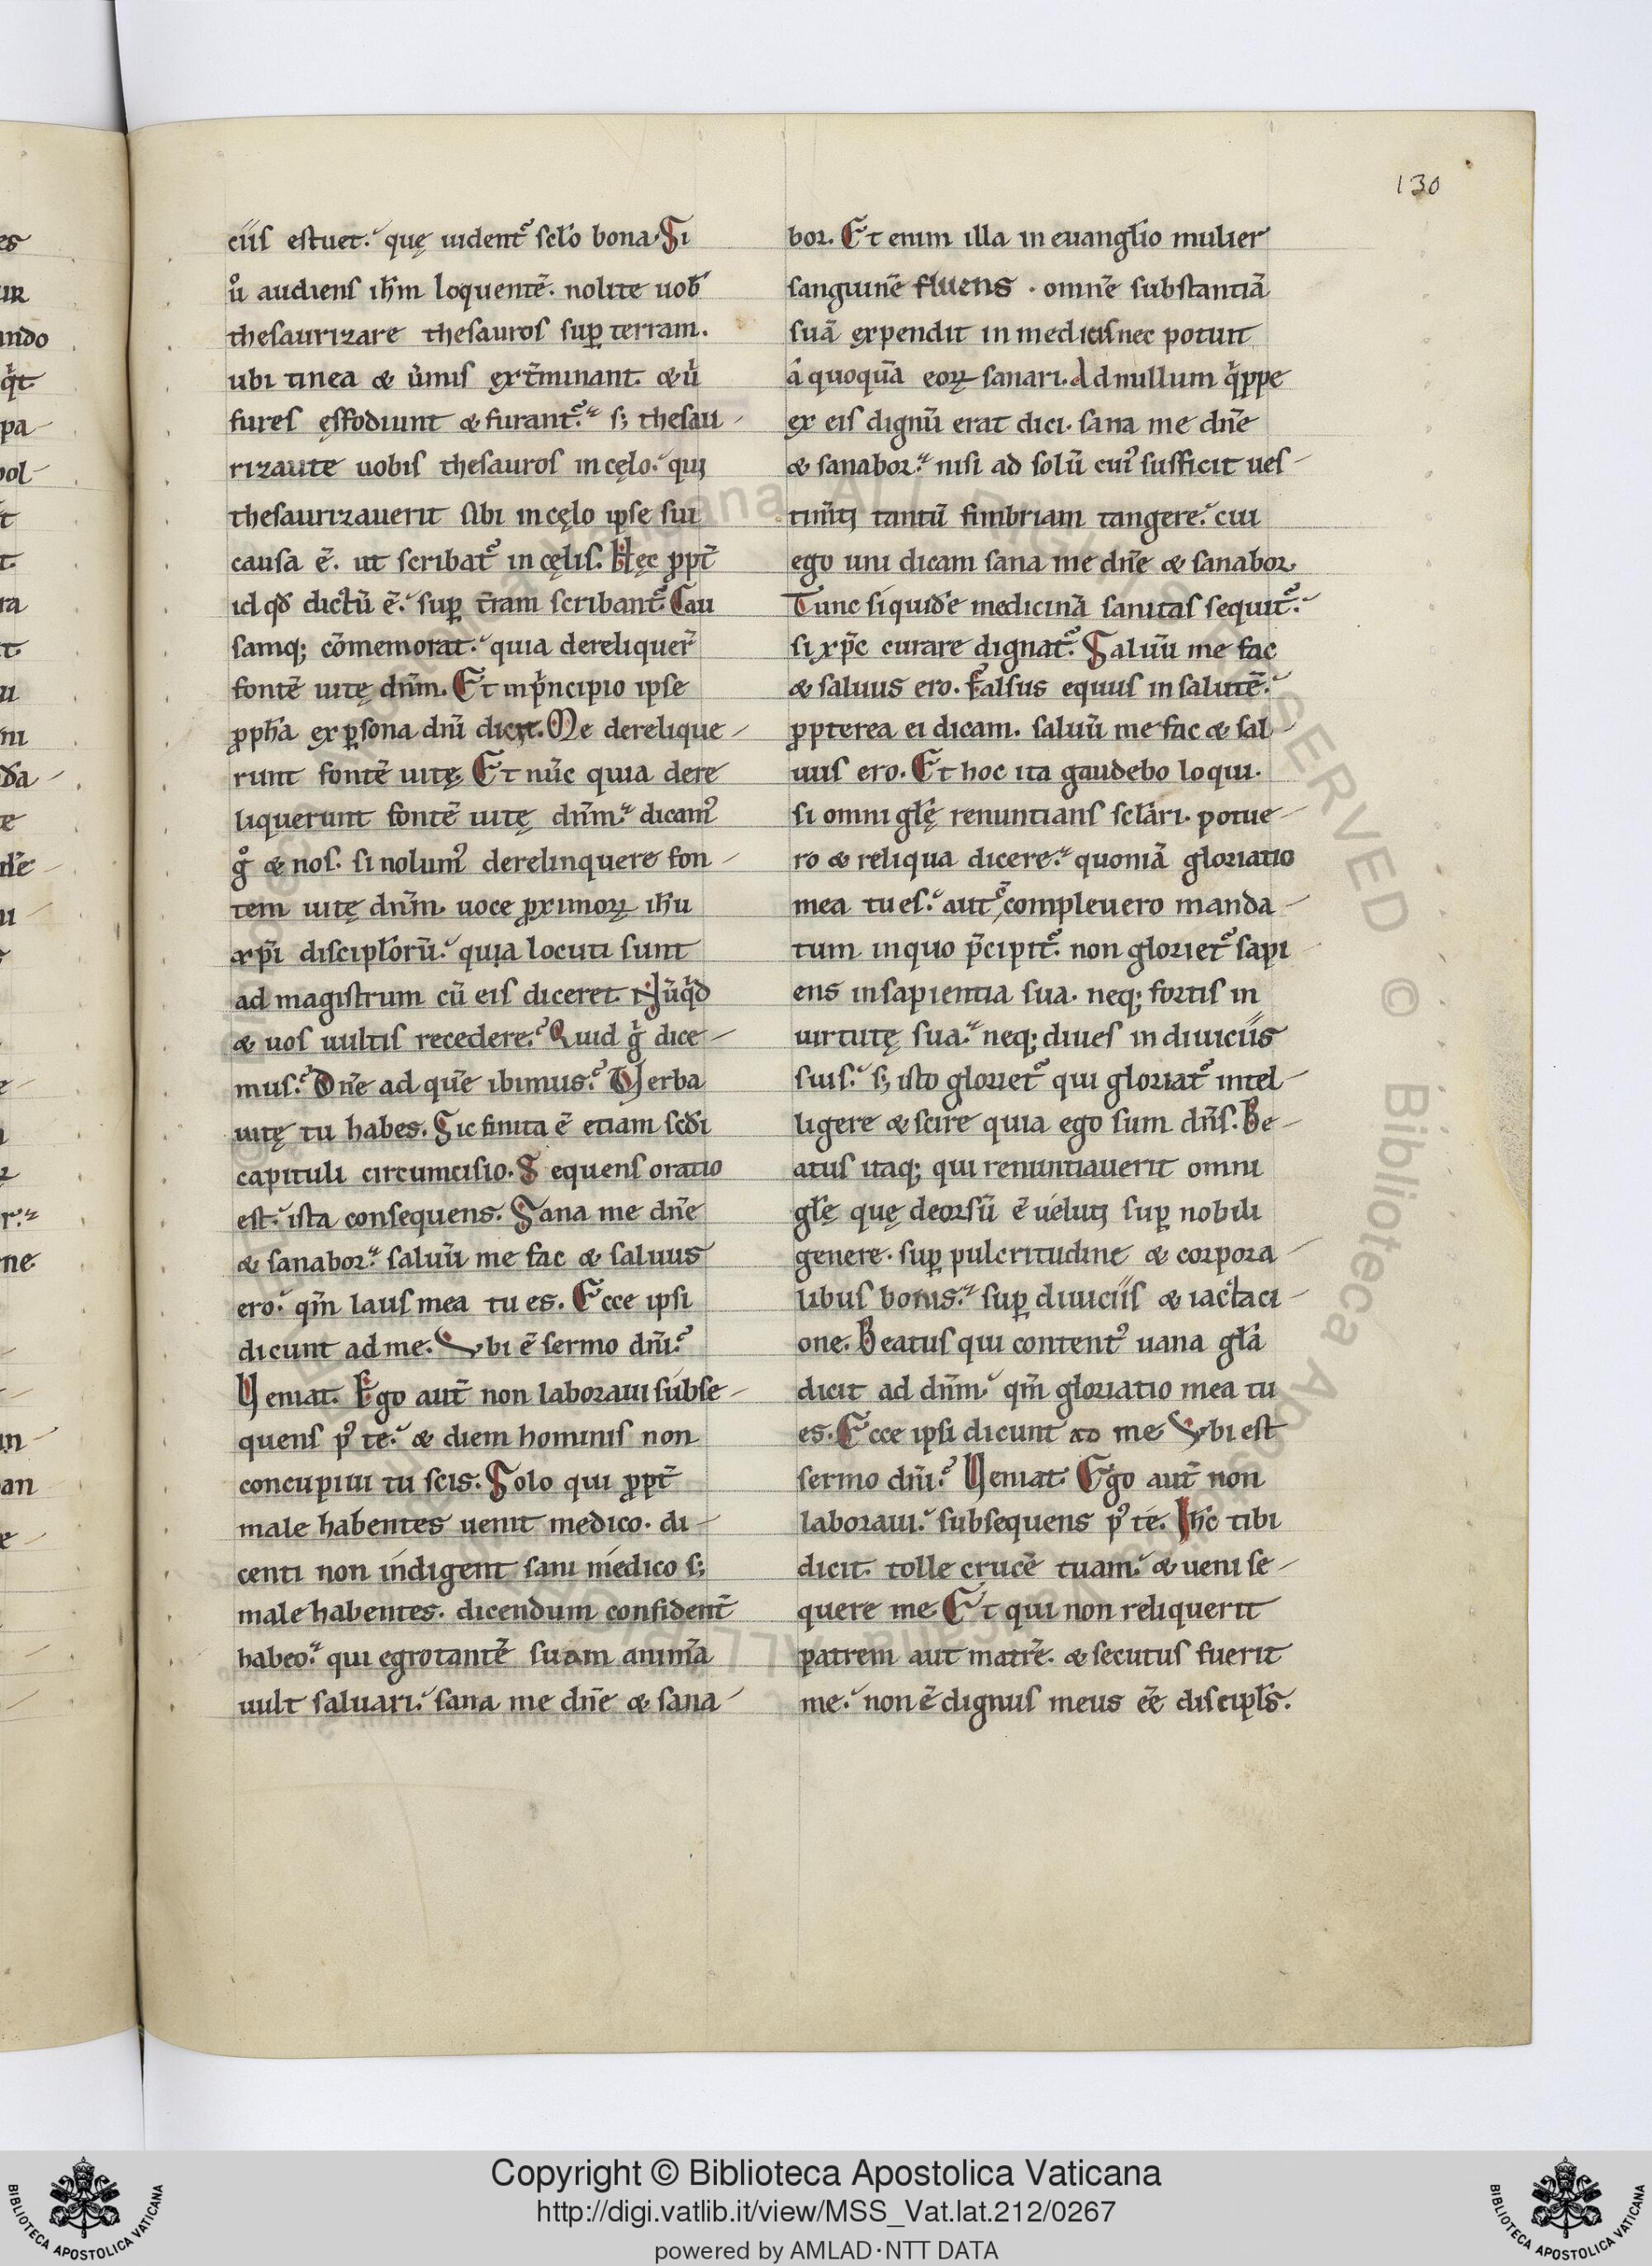 130
ciıs estuet. quę uident᷑ sc̄lo bona. Si
u̇ audiens ih̄m loquentē. nolite uob̄
thesaurizare thesauros sup̱ terram.
ubi tinea & ūmis ext̄minant. & u̇
fures effodiunt & furant᷑. s; thesau
rizate uobis thesauros in cęlo. qui
thesaurizauerit sibi in cęlo ipse sui
causa ē. ut scribat᷑ in cęlis. Hęc ꝓpt̄
id qđ dictū ē. sup̱ t̄ram scribant᷑. Cau
samq; cōmemorat. quia dereliquer̄
fontē uitę dn̄m. Et inp̄ncipio ipse
ꝓph̄a ex ꝑsona dn̄i dicit. Me derelique
runt fontē uitę. Et nūc quia dere
liquerunt fontē uitę dn̄m. dicamꝰ
g̊ & nos. si nolumꝰ derelinquere fon
tem uitę dn̄m. uoce ꝓximoꝝ ih̄u
xp̄i disciplōrū. quia locuti sunt
ad magistrum cū eis diceret. Nūq̇d
& uos uultis recedere? Quid g̊ dice
mus? Dn̄e ad quē ibimus? Verba
uitę tu habes. Sic finita ē etiam sc̄di
capituli circumcisio. Sequens oratio
est. ista consequens. Sana me dn̄e
& sanabor. saluū me fac & saluus
ero. qm̄ laus mea tu es. Ecce ipsi
dicunt ad me. Vbi ē sermo dn̄i?
Veniat. Ego aut̄ non laboraui subse
quens pꝰ te. & diem hominis non
concupiui tu scis. Solo qui ꝓpt̄
male habentes uenit medico. di
centi non indigent sani medico s;
male habentes. dicendum confident̄
habeo. qui egrotantē suam animā
uult saluari. sana me dn̄e & sana
bor. Et enim illa in euanglīo mulier
sanguinē fluens . omnē substantiā
suā expendit in medicis nec potuit
a quoquā eoꝝ sanari. Ad nullum q̇ppe
ex eis dignū erat dici. sana me dn̄e
& sanabor. nisi ad solū cuiꝰ sufficit ues
tim̄ti tantū fimbriam tangere. cui
ego uni dicam sana me dn̄e & sanabor.
Tunc siquidē medicinā sanitas sequit᷑.
si xp̄c curare dignat᷑. Saluū me fac
& saluus ero. Falsus equus in salutē.
ꝓpterea ei dicam. saluū me fac & sal
uus ero. Et hoc ita gaudebo loqui.
si omni glę̄ renuntians sclāri. potue
ro & reliqua dicere. quoniā gloriatio
mea tu es. aut᷑ compleuero manda
tum in quo p̄cipit᷑. non gloriet᷑ sapi
ens in sapientia sua. neq; fortis in
uirtutę sua. neq; diues in diuiciis
suis. s; isto gloriet᷑ qui gloriat᷑ intel
ligere & scire quia ego sum dn̄s. Be
atus itaq; qui renuntiauerit omni
glę̄ quę deorsū ē uelutj sup̱ nobili
genere. sup̱ pulcritudine & corpora
libus bonis. sup̱ diuiciis & iactaci
one. Beatus qui contentꝰ uana glā
dicit ad dn̄m. qm̄ gloriatio mea tu
es. Ecce ipsi dicunt ad me Vbi est
sermo dn̄i? Veniat. Ego aut̄ non
laboraui. subsequens pꝰ te. Ih̄c tibi
dicit. tolle crucē tuam. & ueni se
quere me. Et qui non reliquerit
patrem aut matrē. & secutus fuerit
me. non ē dignus meus ēē discipls̄.
Copyright © Biblioteca Apostolica Vaticana
http://digi.vatlib.it/view/MSS_Vat.lat.212/0267
powered by AMLAD·NTT DATA
BIBLIOTECA APOSTOLICA VATICANA
BIBLIOTECA APOSTOLICA VATICANA